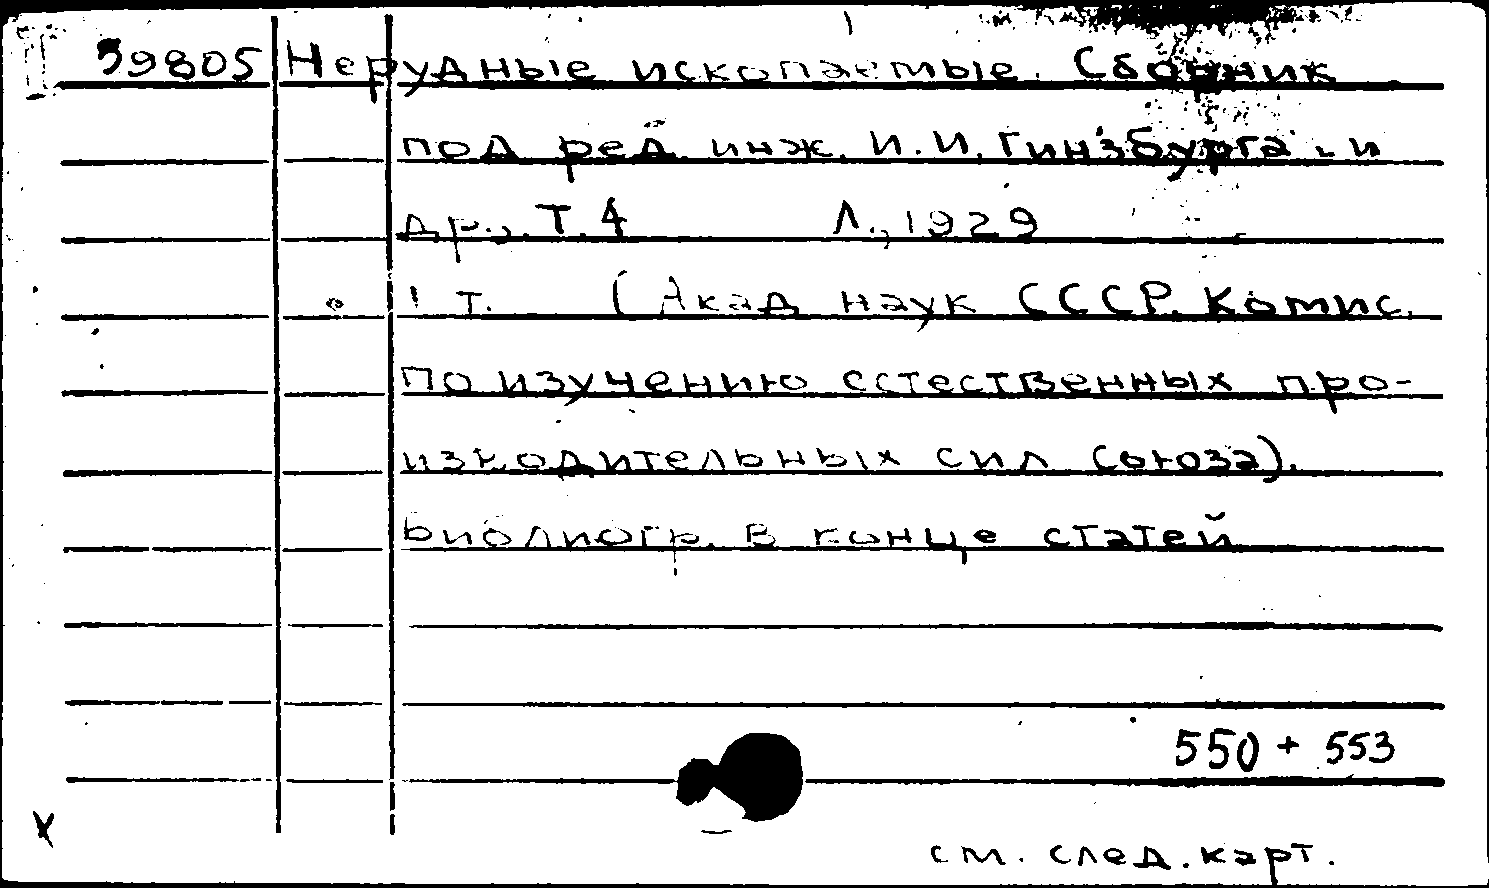 39805 Нерудные ископаемые. Сборник
под ред. инж. И.И. Гинзбурга и
др., Т. 4 Л., 1929
1 т. (Акад наук СССР. Комис.
по изучению естественных про-
изводительных сил Союза).
Библиогр. в конце статей
550 + 553
X
см. след. карт.